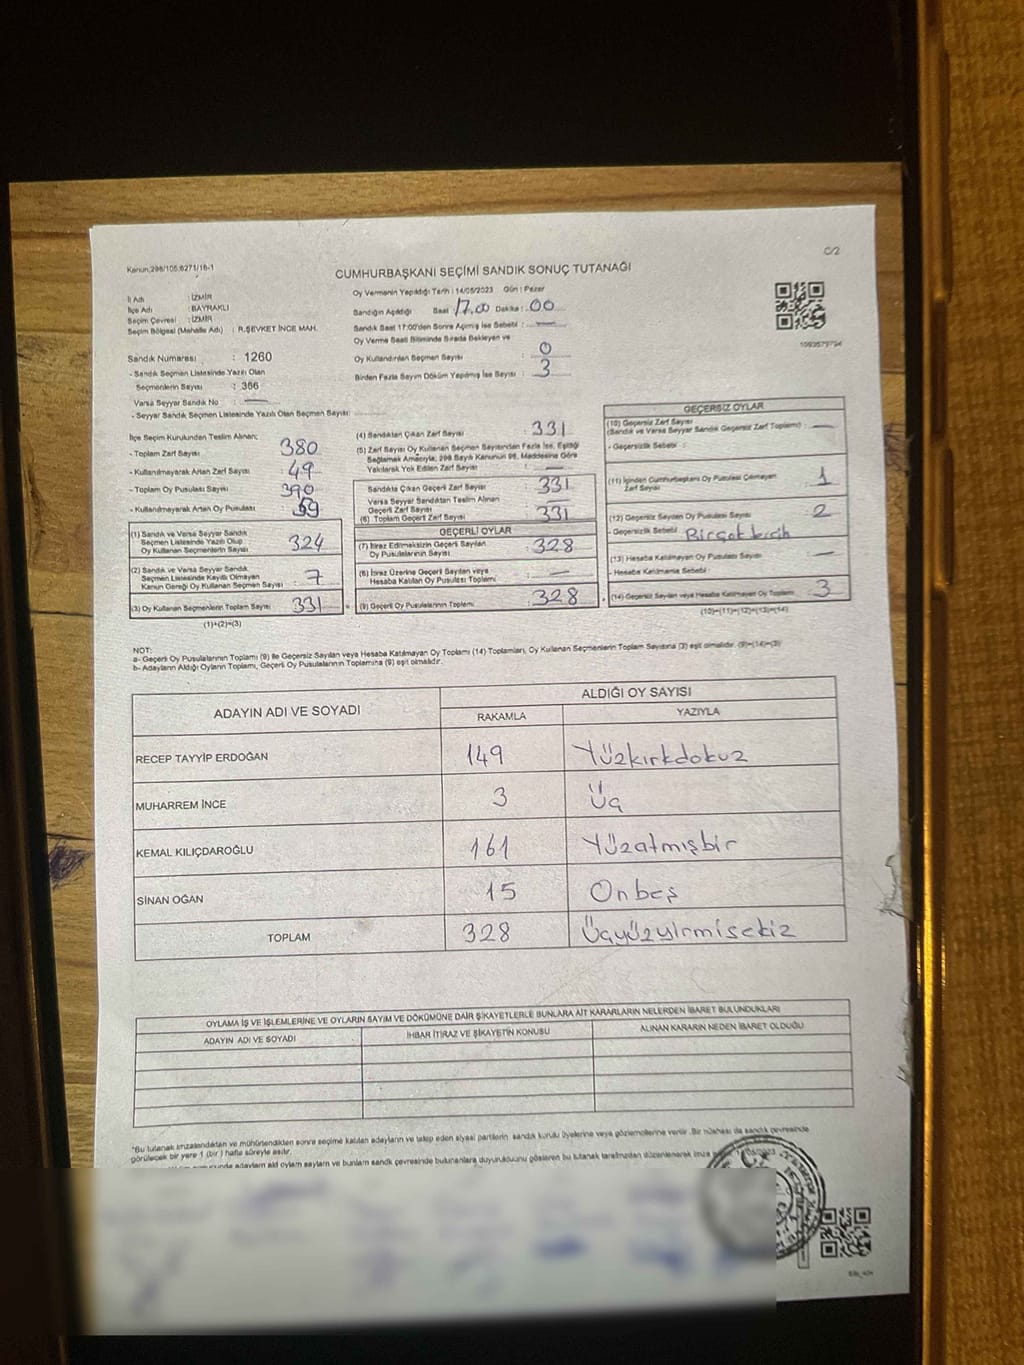 C/2
Kanun:298/105;6271/16-1
CUMHURBAŞKANI SEÇİMİ SANDIK SONUÇ TUTANAĞI
İl Adı : İZMİR
İlçe Adı : BAYRAKLI
Seçim Çevresi : İZMİR
Seçim Bölgesi (Mahalle Adı) : R.ŞEVKET İNCE MAH.
Oy Vermenin Yapıldığı Tarih : 14/05/2023 Gün : Pazar
Sandığın Açıldığı Saat : 17.00 Dakika : 00
Sandık Saat 17:00'den Sonra Açılmış İse Sebebi : —
Oy Verme Saati Bitiminde Sırada Bekleyen ve
Oy Kullandırılan Seçmen Sayısı : 0
Birden Fazla Sayım Döküm Yapılmış İse Sayısı : 3
1093579794
Sandık Numarası : 1260
- Sandık Seçmen Listesinde Yazılı Olan
Seçmenlerin Sayısı : 366
Varsa Seyyar Sandık No : —
- Seyyar Sandık Seçmen Listesinde Yazılı Olan Seçmen Sayısı:
İlçe Seçim Kurulundan Teslim Alınan;
- Toplam Zarf Sayısı : 380
- Kullanılmayarak Artan Zarf Sayısı : 49
- Toplam Oy Pusulası Sayısı : 390
- Kullanılmayarak Artan Oy Pusulası : 59
(1) Sandık ve Varsa Seyyar Sandık
Seçmen Listesinde Yazılı Olup
Oy Kullanan Seçmenlerin Sayısı : 324
(2) Sandık ve Varsa Seyyar Sandık
Seçmen Listesinde Kayıtlı Olmayan
Kanun Gereği Oy Kullanan Seçmen Sayısı : 7
(3) Oy Kullanan Seçmenlerin Toplam Sayısı : 331
(1)+(2)=(3)
(4) Sandıktan Çıkan Zarf Sayısı : 331
(5) Zarf Sayısı Oy Kullanan Seçmen Sayısından Fazla İse, Eşitliği
Sağlamak Amacıyla; 298 Sayılı Kanunun 98. Maddesine Göre
Yakılarak Yok Edilen Zarf Sayısı : —
Sandıkta Çıkan Geçerli Zarf Sayısı : 331
Varsa Seyyar Sandıktan Teslim Alınan
Geçerli Zarf Sayısı : —
(6) Toplam Geçerli Zarf Sayısı : 331
GEÇERLİ OYLAR
(7) İtiraz Edilmeksizin Geçerli Sayılan
Oy Pusulalarının Sayısı : 328
(8) İtiraz Üzerine Geçerli Sayılan veya
Hesaba Katılan Oy Pusulası Toplamı : —
(9) Geçerli Oy Pusulalarının Toplamı : 328
GEÇERSİZ OYLAR
(10) Geçersiz Zarf Sayısı
(Sandık ve Varsa Seyyar Sandık Geçersiz Zarf Toplamı) : —
- Geçersizlik Sebebi :
(11) İçinden Cumhurbaşkanı Oy Pusulası Çıkmayan
Zarf Sayısı : 1
(12) Geçersiz Sayılan Oy Pusulası Sayısı : 2
- Geçersizlik Sebebi : Birçok tercih
(13) Hesaba Katılmayan Oy Pusulası Sayısı : —
- Hesaba Katılmama Sebebi :
(14) Geçersiz Sayılan veya Hesaba Katılmayan Oy Toplamı : 3
(10)+(11)+(12)+(13)=(14)
NOT:
a- Geçerli Oy Pusulalarının Toplamı (9) ile Geçersiz Sayılan veya Hesaba Katılmayan Oy Toplamı (14) Toplamları, Oy Kullanan Seçmenlerin Toplam Sayısına (3) eşit olmalıdır. (9)+(14)=(3)
b- Adayların Aldığı Oyların Toplamı, Geçerli Oy Pusulalarının Toplamına (9) eşit olmalıdır.
ADAYIN ADI VE SOYADI ALDIĞI OY SAYISI
RAKAMLA YAZIYLA
RECEP TAYYİP ERDOĞAN 149 Yüzkırkdokuz
MUHARREM İNCE 3 Üç
KEMAL KILIÇDAROĞLU 161 Yüzatmışbir
SİNAN OĞAN 15 Onbeş
TOPLAM 328 Üçyüzyirmisekiz
OYLAMA İŞ VE İŞLEMLERİNE VE OYLARIN SAYIM VE DÖKÜMÜNE DAİR ŞİKAYETLERLE BUNLARA AİT KARARLARIN NELERDEN İBARET BULUNDUKLARI
ADAYIN ADI VE SOYADI İHBAR İTİRAZ VE ŞİKAYETİN KONUSU ALINAN KARARIN NEDEN İBARET OLDUĞU
*Bu tutanak imzalandıktan ve mühürlendikten sonra seçime katılan adayların ve talep eden siyasi partilerin sandık kurulu üyelerine veya gözlemcilerine verilir. Bir nüshası da sandık çevresinde
görülecek bir yere 1 (bir) hafta süreyle asılır.
adayların aldığı oyların sayıları ve bunların sandık çevresinde bulunanlara duyurulduğunu gösteren bu tutanak tarafımızdan düzenlenerek imza